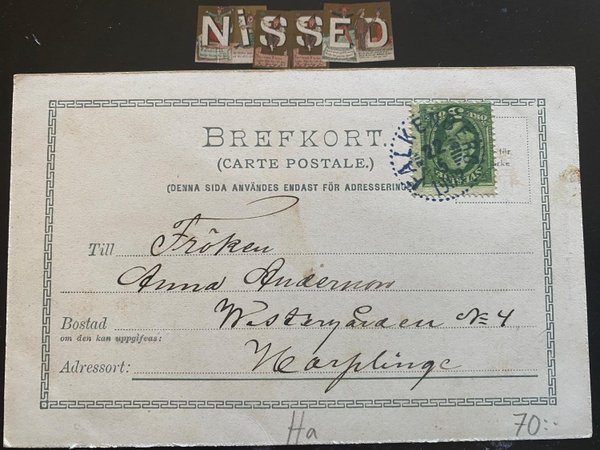 NISSED
BREFKORT.
(CARTE POSTALE.)
(DENNA SIDA ANVÄNDES ENDAST FÖR ADRESSERING
för
Till Fröken
Anna Anderson
Bostad Westergården No 4
om den kan uppgifvas:
Adressort: Harplinge
Ha 70:-